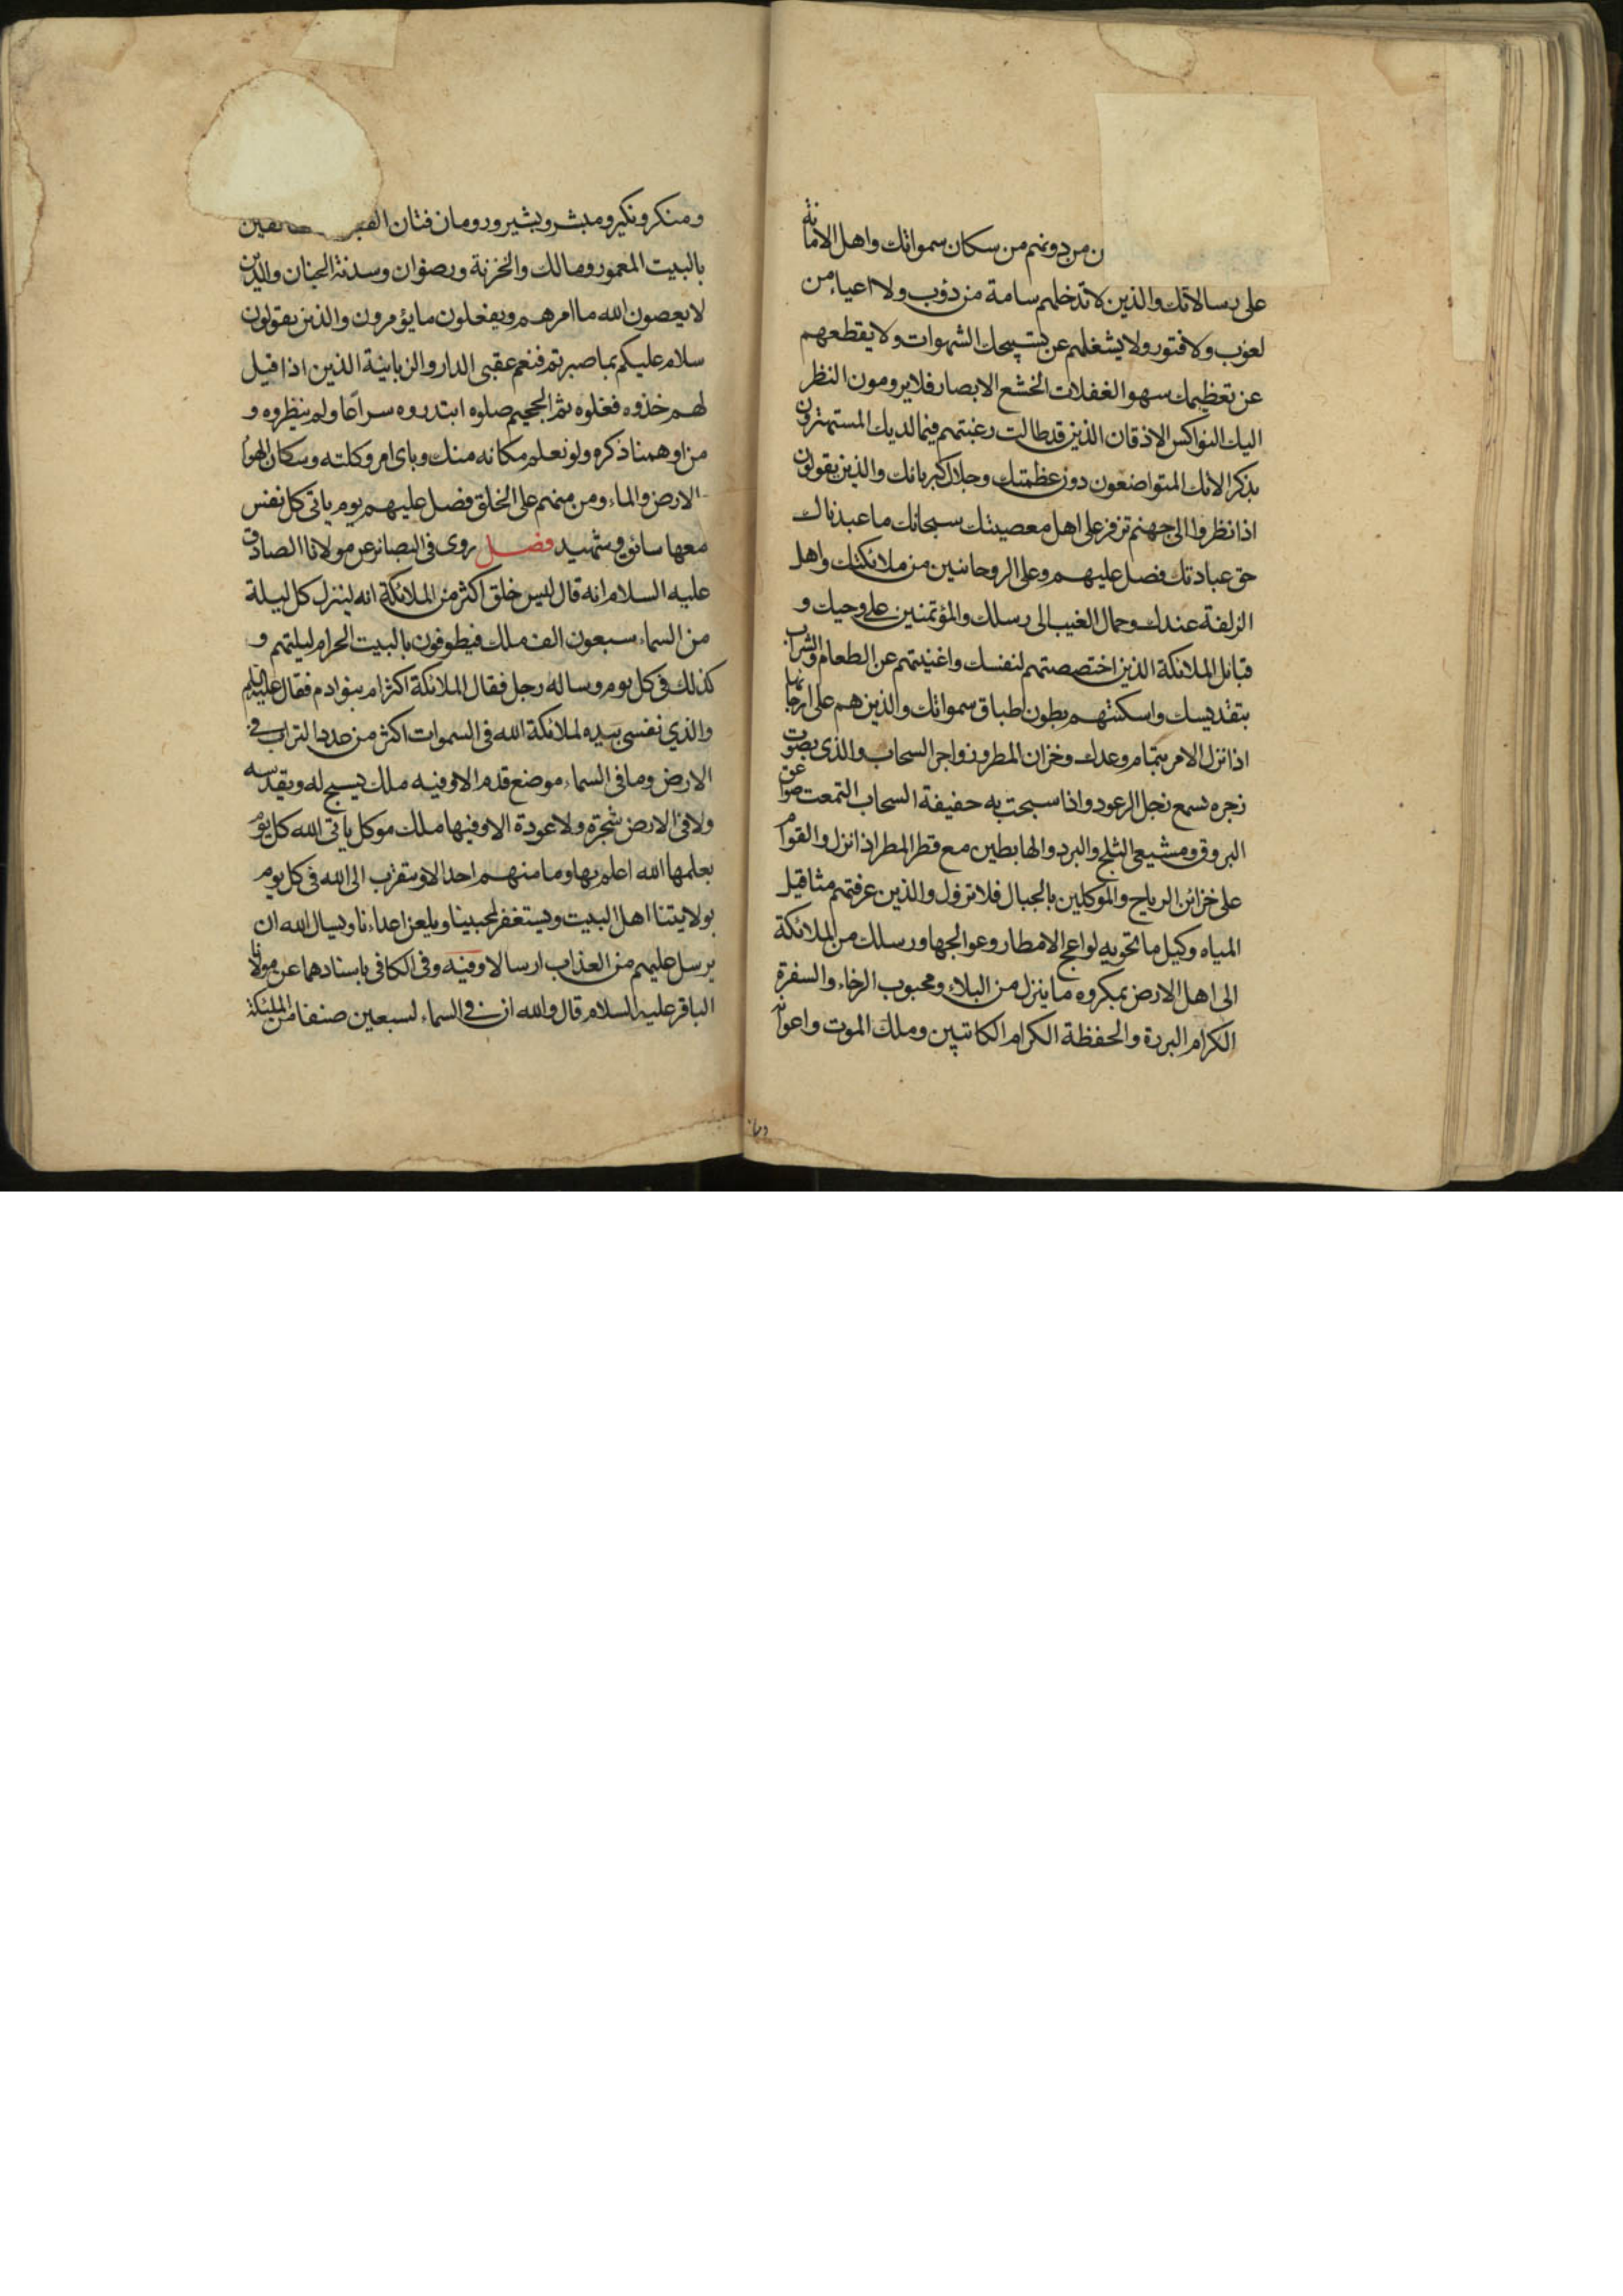 ن من دونهم من سكان سمواتك واهل الامانة
على رسالاتك والذين لا تدخلهم سامة من دؤب ولا اعياء من
لغوب ولا فتور ولا يشغلهم عن تسبيحك الشهوات ولا يقطعهم
عن تعظيمك سهو الغفلات الخشع الابصار فلا يرومون النظر
اليك النواكس الاذقان الذين قد طالت رغبتهم فيما لديك المستهترون
بذكر الائك المتواضعون دون عظمتك وجلال كبريائك والذين يقولون
اذا نظروا الى جهنم تزفر على اهل معصيتك سبحانك ما عبدناك
حق عبادتك فصل عليهم وعلى الروحانيين من ملائكتك واهل
الزلفة عندك وحمال الغيب الى رسلك والمؤتمنين على وحيك و
قبائل الملائكة الذين اختصصتهم لنفسك واغنيتهم عن الطعام والشراب
بتقديسك واسكنتهم بطون اطباق سمواتك والذين هم على ارجائها
اذا نزل الامر بتمام وعدك وخزان المطر وزواجر السحاب والذى بصوت
زجره تسمع زجل الرعود واذا سبحت به حفيفة السحاب التمعت صواعق
البروق ومشيعى الثلج والبرد والهابطين مع قطر المطر اذا نزل والقوام
على خزائن الرياح والموكلين بالجبال فلا تزول والذين عرفتهم مثاقيل
المياه وكيل ما تحويه لواعج الامطار وعوالجها ورسلك من الملائكة
الى اهل الارض بمكروه ما ينزل من البلاء ومحبوب الرخاء والسفرة
الكرام البررة والحفظة الكرام الكاتبين وملك الموت واعوانه
ومنكر ونكير ومبشر وبشير ورومان فتان القبور
بالبيت المعمور ومالك والخزنة ورضوان وسدنة الجنان والذين
لا يعصون الله ما امرهم ويفعلون ما يؤمرون والذين يقولون
سلام عليكم بما صبرتم فنعم عقبى الدار والزبانية الذين اذا قيل
لهم خذوه فغلوه ثم الجحيم صلوه ابتدروه سراعا ولم ينظروه و
من اوهمنا ذكره ولو نعلم مكانه منك وباى امر وكلته وسكان الهواء
الارض والماء ومن منهم على الخلق فصل عليهم يوم ياتى كل نفس
معها سائق وشهيد فصل روى فى البصائر عن مولانا الصادق
عليه السلام انه قال ليس خلق اكثر من الملائكة انه لينزل كل ليلة
من السماء سبعون الف ملك فيطوفون بالبيت الحرام ليلتهم و
كذلك فى كل يوم وساله رجل فقال الملائكة اكثر ام بنو ادم فقال عليه السلم
والذي نفسى بيده لملائكة الله فى السموات اكثر من عدد التراب فى
الارض وما فى السماء موضع قدم الا وفيه ملك يسبح له ويقدسه
ولا فى الارض شجرة ولا عودة الا وفيها ملك موكل ياتى الله كل يوم
بعلمها الله اعلم بها وما منهم احد الا ويتقرب الى الله فى كل يوم
بولايتنا اهل البيت ويستغفر لمحبينا ويلعن اعداءنا ويسال الله ان
يرسل عليهم من العذاب ارسالا وفيه وفى الكافى باسنادهما عن مولانا
الباقر عليه السلام قال والله ان فى السماء لسبعين صنفا من الملئكة